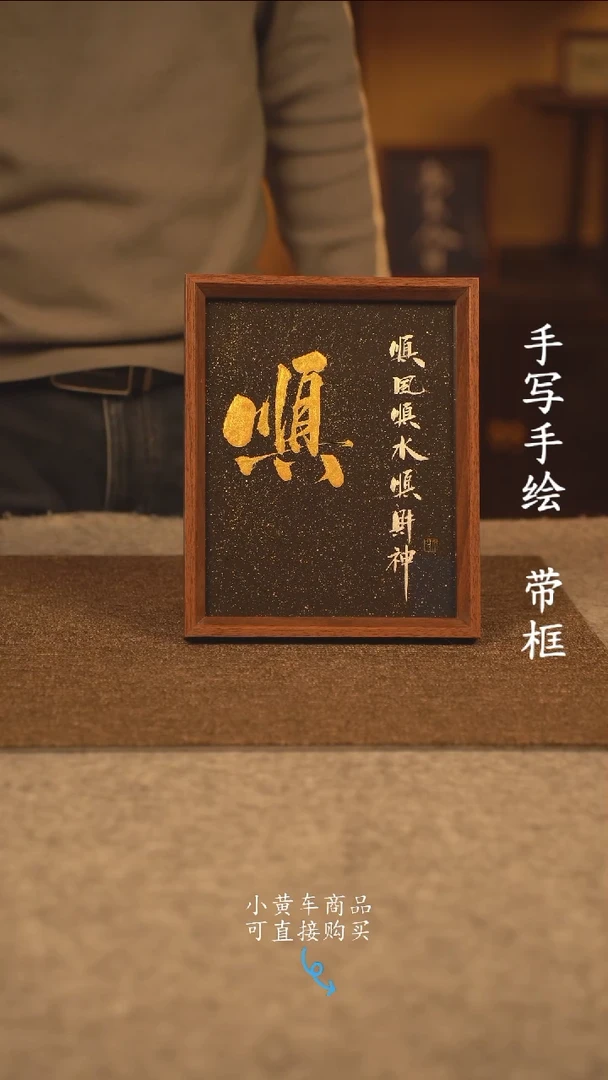 順
順風順水順財神
手写手绘 带框
小黄车商品
可直接购买